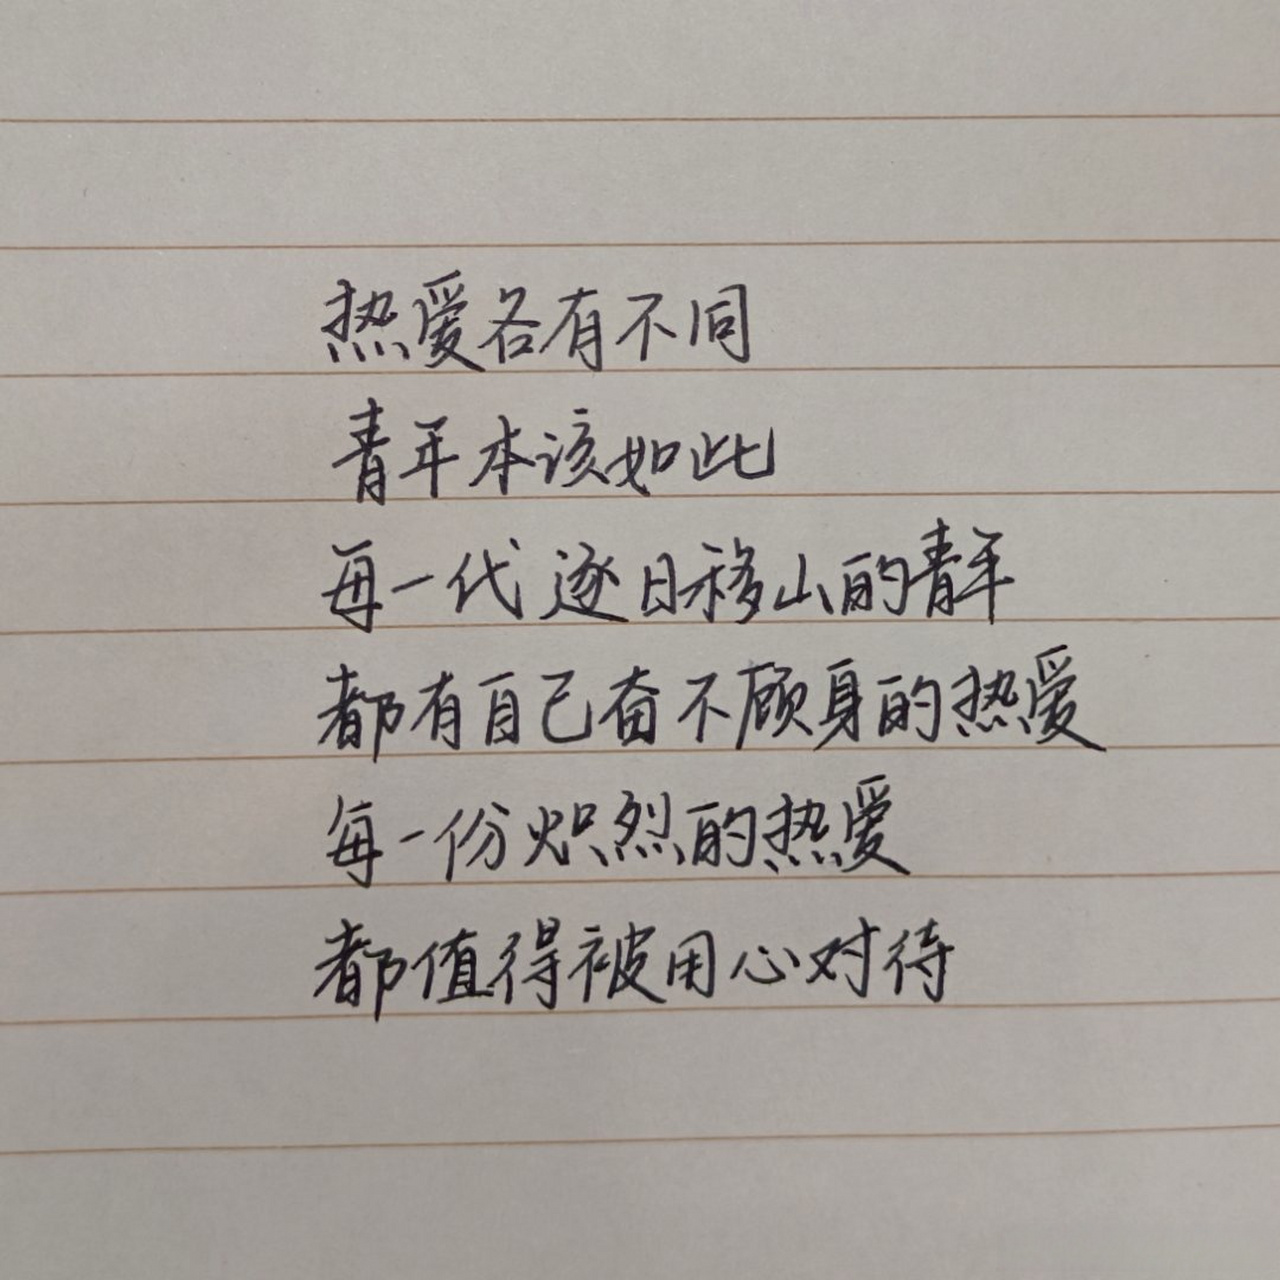 热爱各有不同
青年本该如此
每一代逐日移山的青年
都有自己奋不顾身的热爱
每一份炽烈的热爱
都值得被用心对待